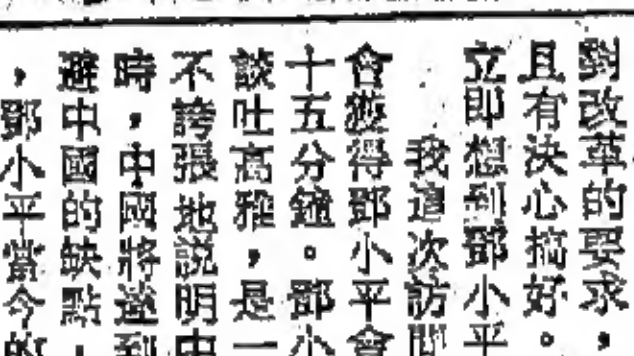 到改革的要求，
且有決心搞好。
立即想到鄧小平
我這次訪問
會獲得鄧小平會
十五分鐘。鄧小
談吐高雅，是一
不誇張地説明中
時，中國將遂到
避中國的缺點，
，鄧小平當今的